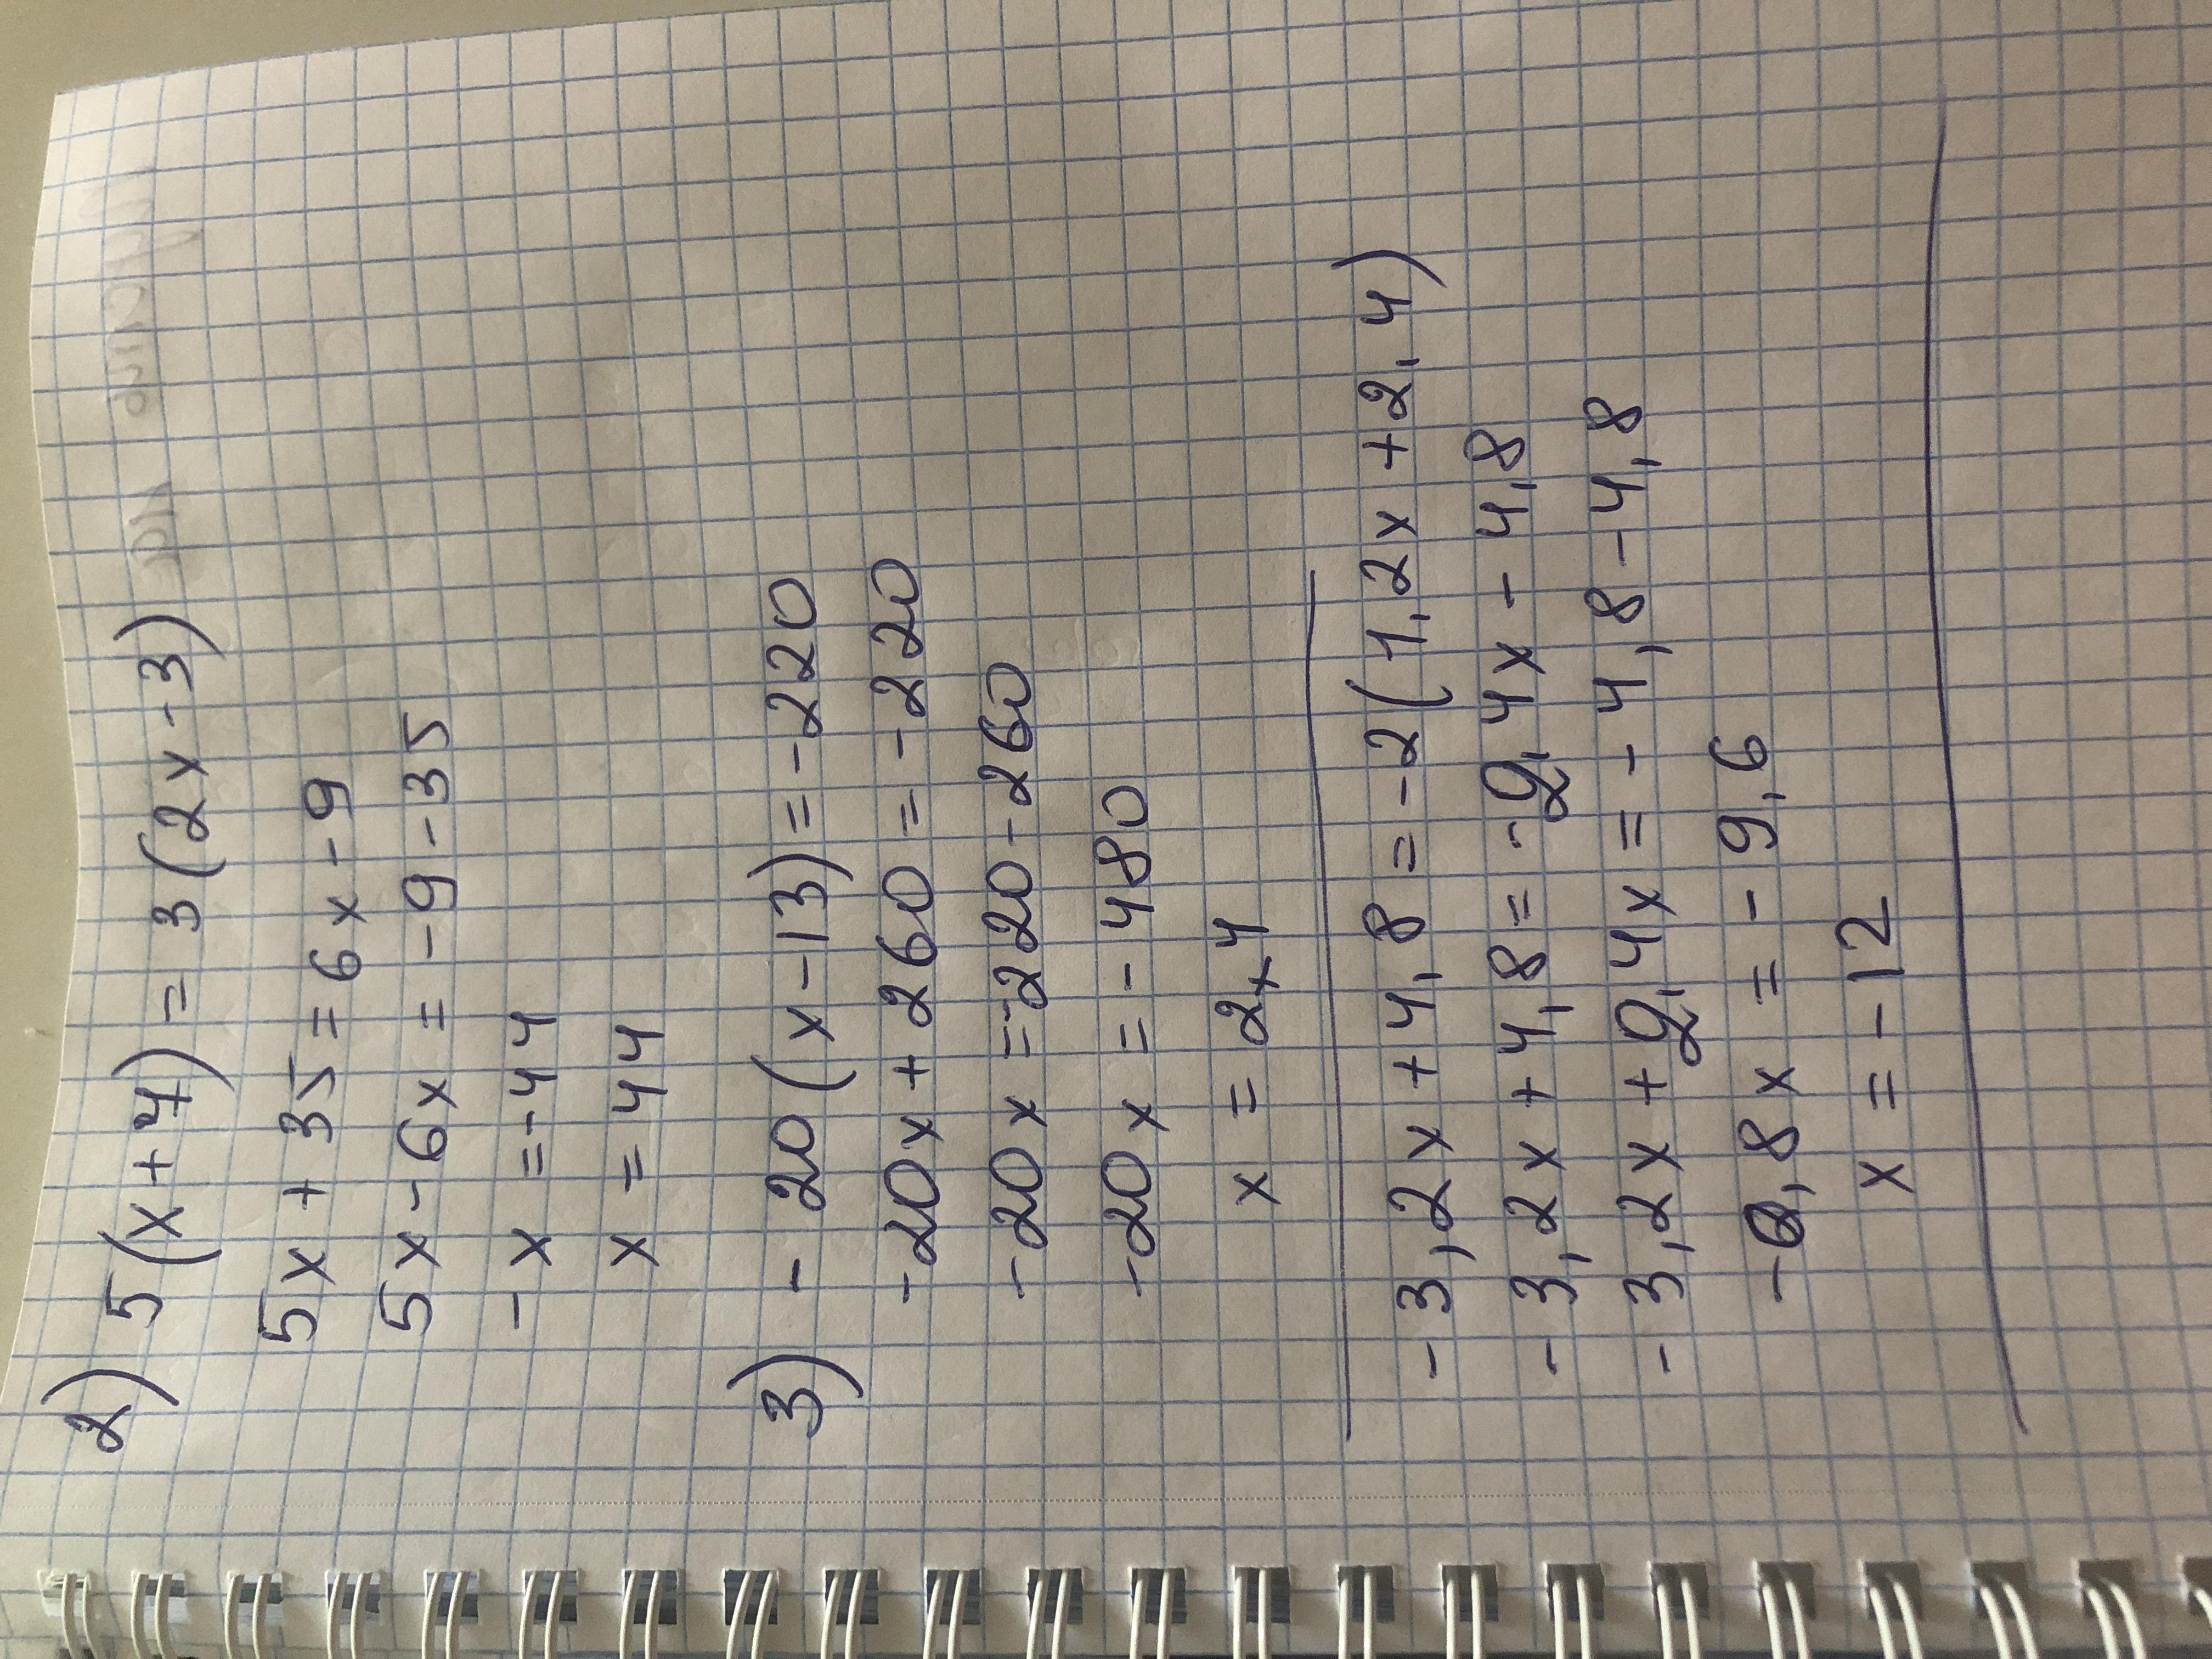 2) 5(x+7) = 3(2x-3)
5x + 35 = 6x - 9
5x - 6x = -9 - 35
-x = -44
x = 44
3) -20(x-13) = -220
-20x + 260 = -220
-20x = -220 - 260
-20x = -480
x = 24
-3,2x + 4,8 = -2(1,2x + 2,4)
-3,2x + 4,8 = -2,4x - 4,8
-3,2x + 2,4x = -4,8 - 4,8
-0,8x = -9,6
x = -12